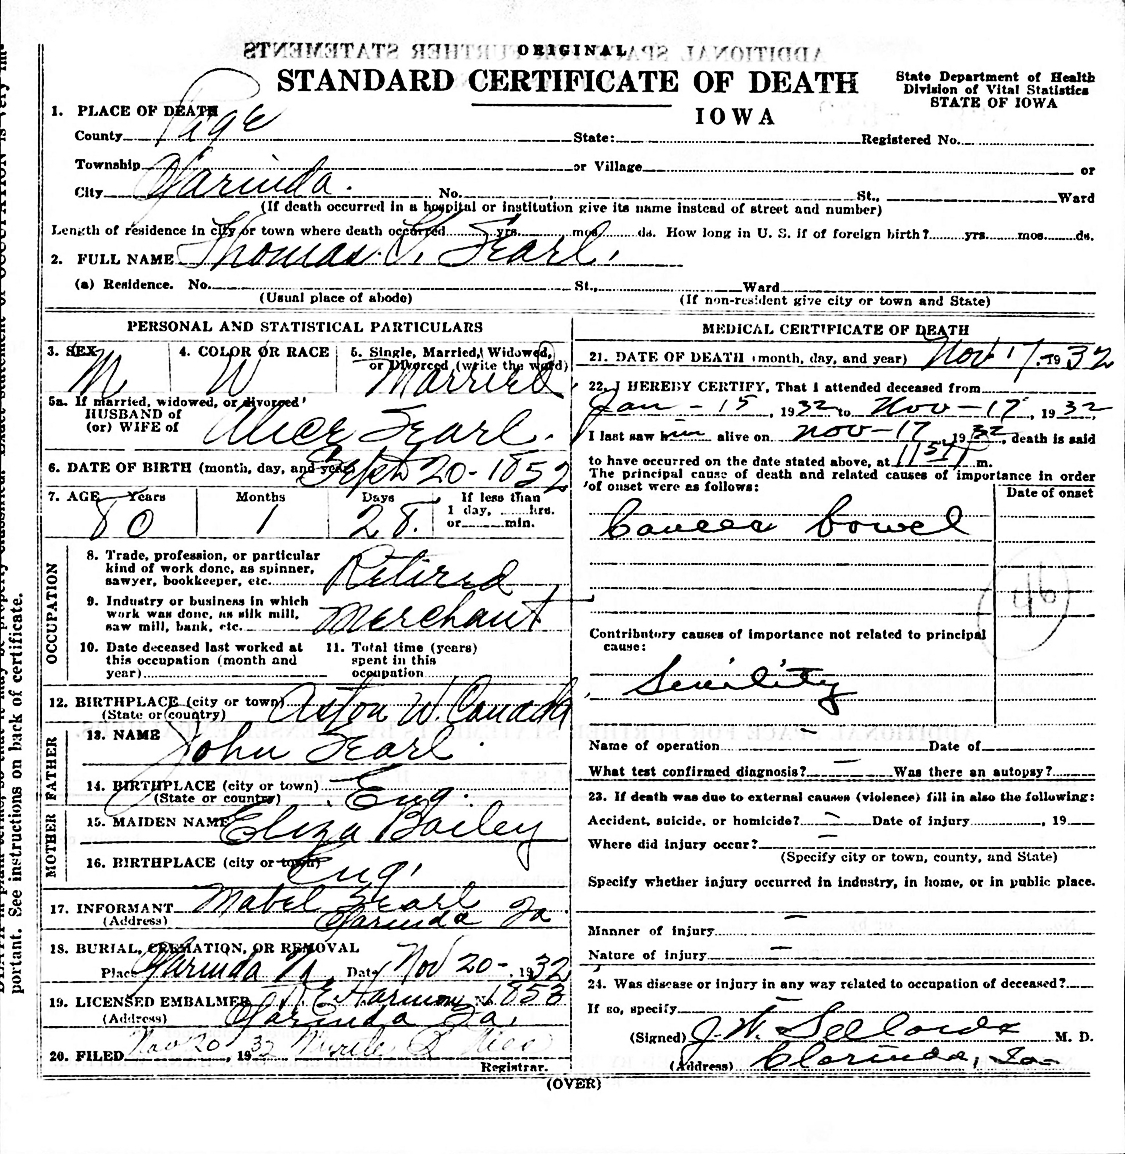 ADDITIONAL SPACE FOR FURTHER STATEMENTS
ORIGINAL
STANDARD CERTIFICATE OF DEATH
IOWA
State Department of Health
Division of Vital Statistics
STATE OF IOWA
1. PLACE OF DEATH
County Page State: Registered No.
Township or Village or
City Clarinda. No. St., Ward
(If death occurred in a hospital or institution give its name instead of street and number)
Length of residence in city or town where death occurred yrs. mos. ds. How long in U. S. if of foreign birth? yrs. mos. ds.
2. FULL NAME Thomas Searl.
(a) Residence. No. St., Ward
(Usual place of abode) (If non-resident give city or town and State)
PERSONAL AND STATISTICAL PARTICULARS
3. SEX 4. COLOR OR RACE 5. Single, Married, Widowed, or Divorced (write the word)
M W Married
5a. If married, widowed, or divorced
HUSBAND of
(or) WIFE of Alice Searl.
6. DATE OF BIRTH (month, day, and year) Sept 20-1852
7. AGE Years Months Days If less than
1 day, hrs.
or min.
80 1 28.
OCCUPATION
8. Trade, profession, or particular
kind of work done, as spinner,
sawyer, bookkeeper, etc. Retired
9. Industry or business in which
work was done, as silk mill,
saw mill, bank, etc. Merchant
10. Date deceased last worked at
this occupation (month and
year)
11. Total time (years)
spent in this
occupation
12. BIRTHPLACE (city or town)
(State or country) Aston W. Canada
FATHER
13. NAME John Searl.
14. BIRTHPLACE (city or town)
(State or country) Eng.
MOTHER
15. MAIDEN NAME Eliza Bailey
16. BIRTHPLACE (city or town) Eng.
17. INFORMANT Mabel Searl
(Address) Clarinda Ia.
18. BURIAL, CREMATION, OR REMOVAL
Place Clarinda Ia Date Nov 20-, 1932
19. LICENSED EMBALMER Harmon 1853
(Address) Clarinda Ia.
20. FILED Nov 20, 1932
Registrar.
MEDICAL CERTIFICATE OF DEATH
21. DATE OF DEATH (month, day, and year) Nov 17, 1932
22. I HEREBY CERTIFY, That I attended deceased from
Jan-15, 1932 to Nov-17, 1932
I last saw him alive on Nov-17 1932, death is said
to have occurred on the date stated above, at m.
The principal cause of death and related causes of importance in order
of onset were as follows:
Date of onset
Cancer bowel
46
Contributory causes of importance not related to principal
cause:
Senility
Name of operation - Date of
What test confirmed diagnosis? - Was there an autopsy?
23. If death was due to external causes (violence) fill in also the following:
Accident, suicide, or homicide? - Date of injury , 19
Where did injury occur? -
(Specify city or town, county, and State)
Specify whether injury occurred in industry, in home, or in public place.
Manner of injury -
Nature of injury -
24. Was disease or injury in any way related to occupation of deceased?
If so, specify -
(Signed) J. W. Sellards M. D.
(Address) Clarinda, Ia
(OVER)
portant. See instructions on back of certificate.